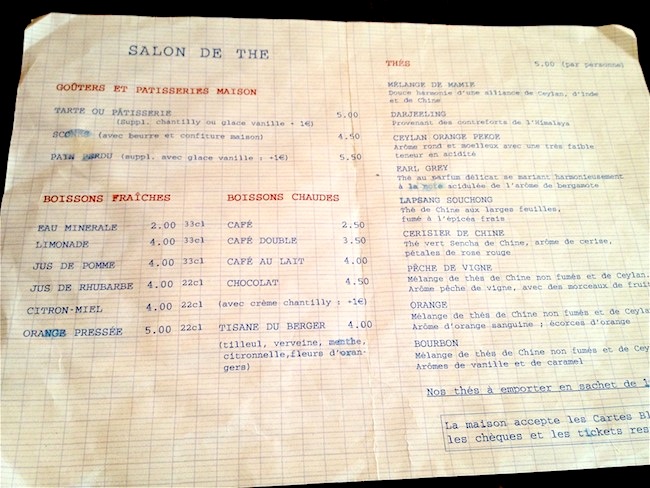 SALON DE THE
GOÛTERS ET PATISSERIES MAISON
TARTE OU PÂTISSERIE 5.00
(Suppl. chantilly ou glace vanille + 1€)
(avec beurre et confiture maison) 4.50
PAIN PERDU (suppl. avec glace vanille : +1€) 5.50
BOISSONS FRAÎCHES
EAU MINERALE 2.00 33cl
LIMONADE 4.00 33cl
JUS DE POMME 4.00 33cl
JUS DE RHUBARBE 4.00 22cl
CITRON-MIEL 4.00 22cl
ORANGE PRESSÉE 5.00 22cl
BOISSONS CHAUDES
CAFÉ 2.50
CAFÉ DOUBLE 3.50
CAFÉ AU LAIT 4.00
CHOCOLAT 4.50
(avec crème chantilly : +1€)
TISANE DU BERGER 4.00
(tilleul, verveine, menthe,
citronnelle,fleurs d'oran-
gers)
THÉS 5.00 (par personne)
MÉLANGE DE MAMIE
Douce harmonie d'une alliance de Ceylan, d'Inde
et de Chine
DARJEELING
Provenant des contreforts de l'Himalaya
CEYLAN ORANGE PEKOE
Arôme rond et moelleux avec une très faible
teneur en acidité
EARL GREY
Thé au parfum délicat se mariant harmonieusement
à la note acidulée de l'arôme de bergamote
LAPSANG SOUCHONG
Thé de Chine aux larges feuilles,
fumé à l'épicéa frais
CERISIER DE CHINE
Thé vert Sencha de Chine, arôme de cerise,
pétales de rose rouge
PÊCHE DE VIGNE
Mélange de thés de Chine non fumés et de Ceylan.
Arôme pêche de vigne, avec des morceaux de fruit
ORANGE
Mélange de thés de Chine non fumés et de Ceylan
Arôme d'orange sanguine ; écorces d'orange
BOURBON
Mélange de thés de Chine non fumés et de Cey
Arômes de vanille et de caramel
Nos thés à emporter en sachet de 1
La maison accepte les Cartes Bl
les chèques et les tickets res